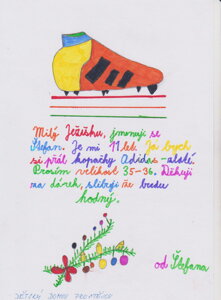 Milý Ježíšku, jmenuji se
Štefan. Je mi 11 let. Já bych
si přál kopačky Adidas - zlaté.
Prosím velikost 35-36. Děkuji
za dárek, slibuji že budu
hodný.
od Štefana
DĚTSKÝ DOMOV